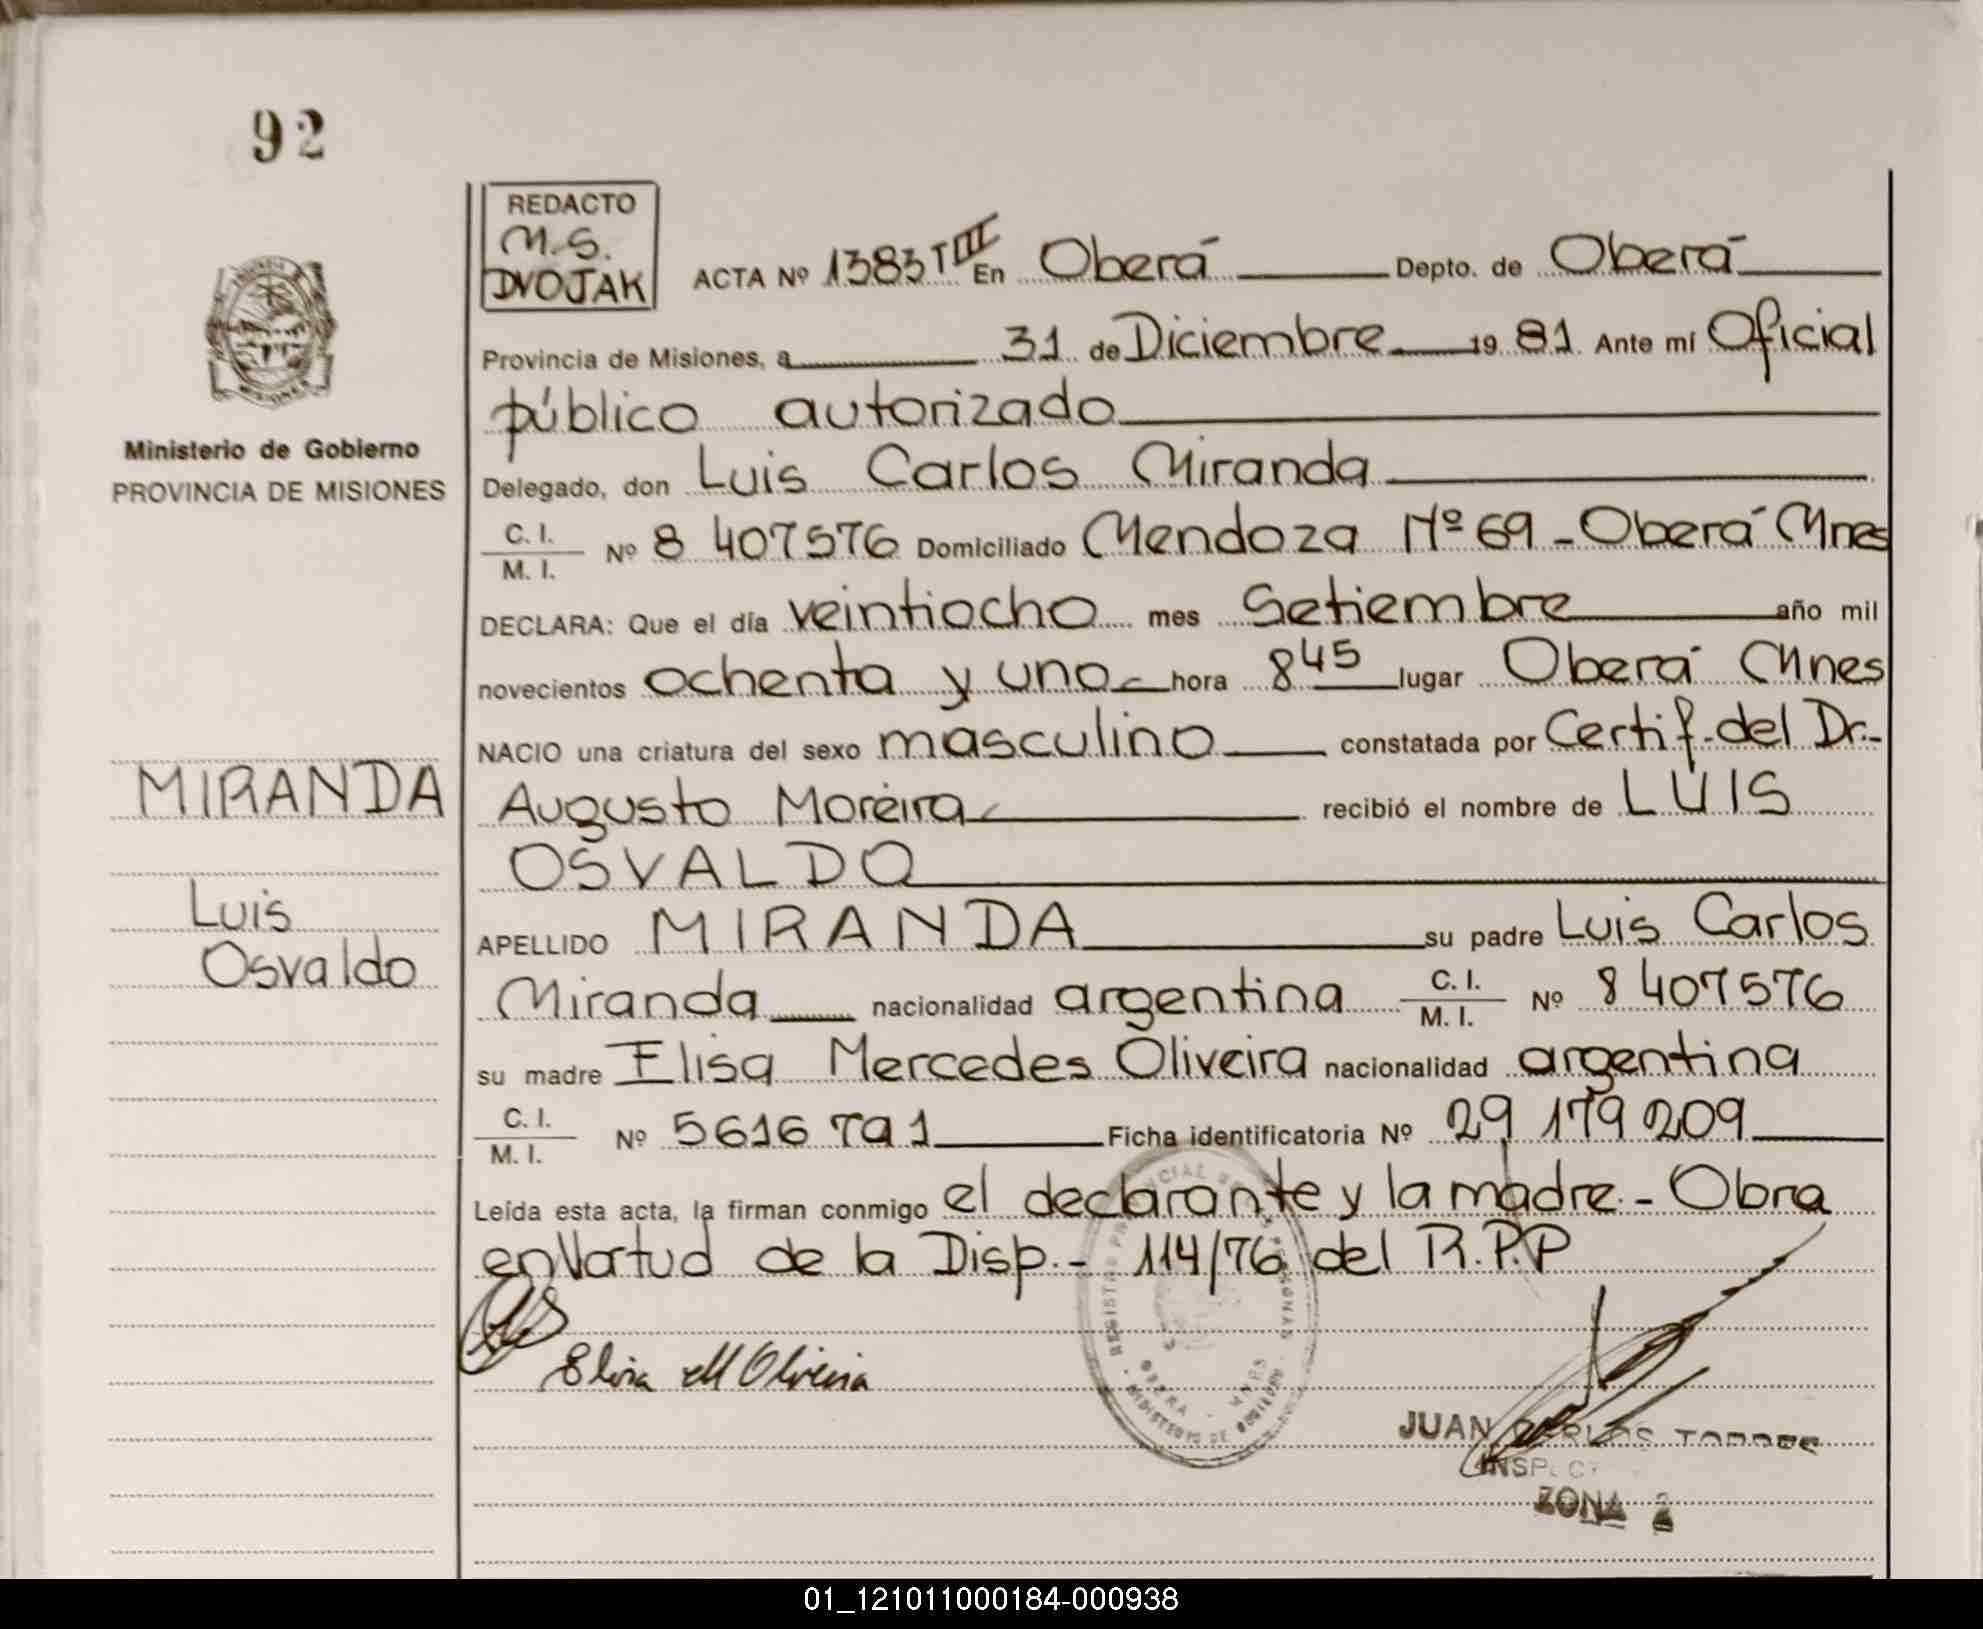 92
REDACTO
M.S.
DVOJAK
ACTA Nº 1383 T III En Oberá Depto. de Oberá
Provincia de Misiones, a 31 de Diciembre 19 81 Ante mí Oficial
público autorizado
Ministerio de Gobierno
PROVINCIA DE MISIONES
Delegado, don Luis Carlos Miranda
C. I.
M. I. Nº 8 407576 Domiciliado Mendoza Nº 69 - Oberá Mnes
DECLARA: Que el día veintiocho mes Setiembre año mil
novecientos ochenta y uno hora 8 45 lugar Oberá Mnes
NACIO una criatura del sexo masculino constatada por Certif. del Dr.-
MIRANDA
Augusto Moreira recibió el nombre de LUIS
OSVALDO
Luis
Osvaldo
APELLIDO MIRANDA su padre Luis Carlos
Miranda nacionalidad argentina C. I. M. I. Nº 8 407576
su madre Elisa Mercedes Oliveira nacionalidad argentina
C. I.
M. I. Nº 5616 791 Ficha identificatoria Nº 29 179 209
Leída esta acta, la firman conmigo el declarante y la madre.- Obra
en Vortud de la Disp.- 114/76 del R.P.P
Elisa M Oliveira
REGISTRO PROVINCIAL DE
OBERA - MNES
MINISTERIO DE GOBIERNO
JUAN CARLOS TORRES
INSPECT
ZONA 2
01_121011000184-000938